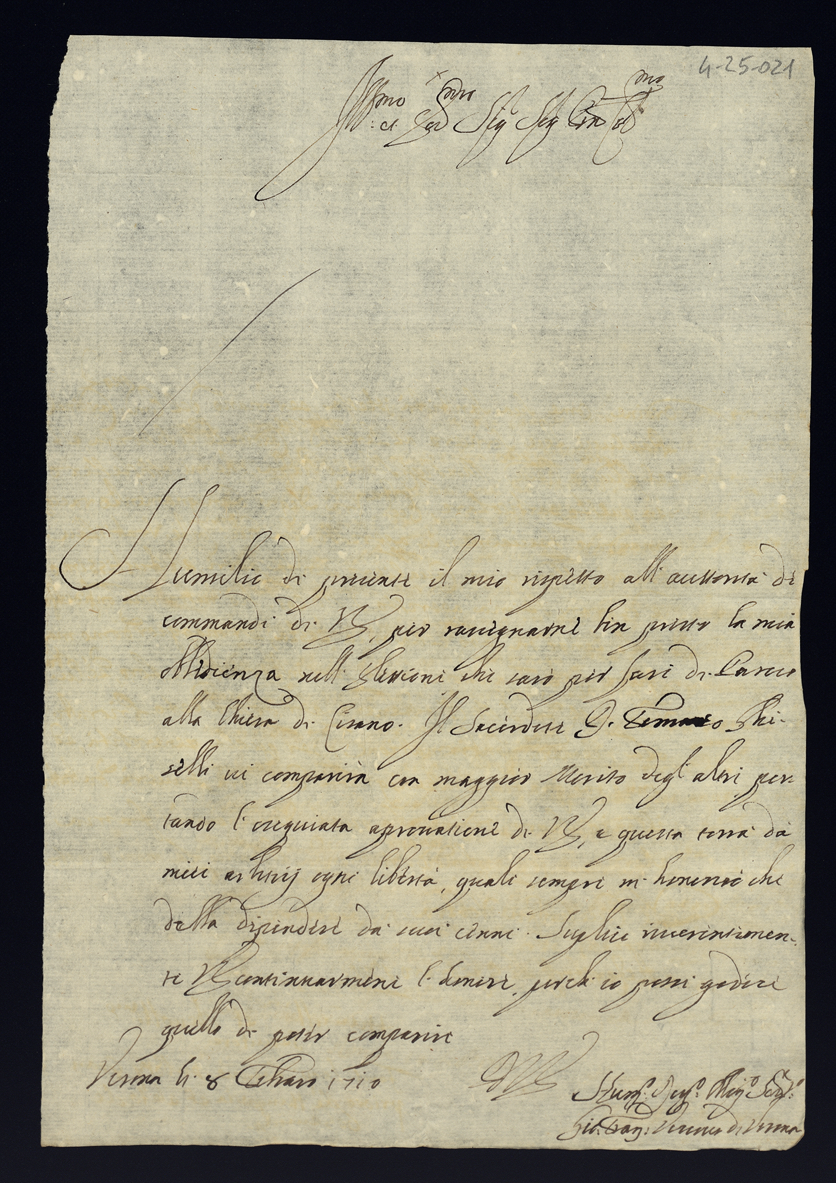 4-25-021
Ill:mo et Ecc:mo Sig:r Sig:r Pron Col:mo
Humilio di presente il mio rispetto all'auttorità de
commandi di VE, per rassegnarne ben presto la mia
obbidienza nell'Elletione che sarò per fare di Paroco
alla Chiesa di Cisano. Il Sacerdote D. Tomaso Ghi-
selli vi comparirà con maggior Merito degl'altri por-
tando l'ossequiata aprovatione di VE, e questa torrà da
miei arbitrij ogni libertà, quali sempre mi honorerò che
della dipendere da suoi cenni. Suplico riverentemen-
te VE continuarmene l'honore, perche io possi godere
quello di poter comparire
Verona li 8 Febraro 1710
DVE
Hum:o Dev:o Oblig:o Ser:re
Gio: Fran: Vescovo di Verona